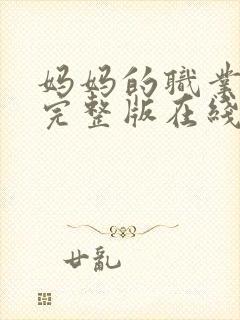 妈妈的职業
完整版在綫
廿亂